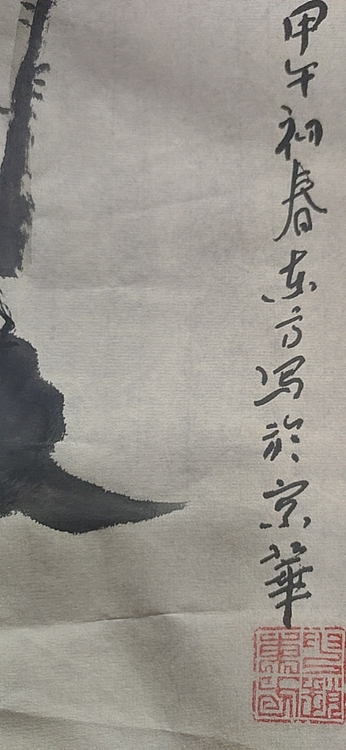 甲午初春东方写於京華